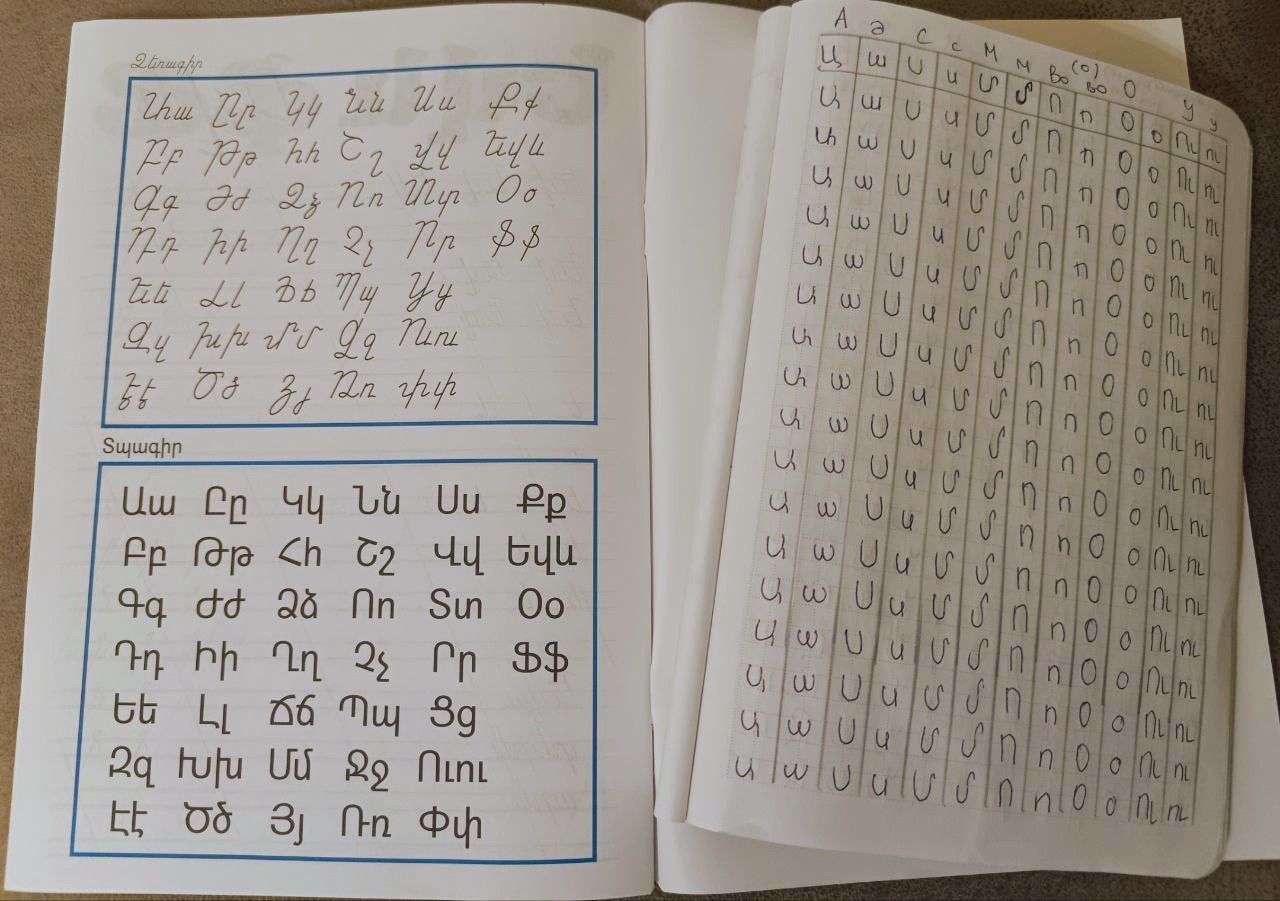 Ձեռագիր
Աա Ըը Կկ Նն Սս Քք
Բբ Թթ Հհ Շշ Վվ Եվև
Գգ Ժժ Ձձ Ոո Տտ Օօ
Դդ Իի Ղղ Չչ Րր Ֆֆ
Եե Լլ Ճճ Պպ Ցց
Զզ Խխ Մմ Ջջ Ուու
Էէ Ծծ Յյ Ռռ Փփ
Տպագիր
Աա Ըը Կկ Նն Սս Քք
Բբ Թթ Հհ Շշ Վվ Եվև
Գգ Ժժ Ձձ Ոո Տտ Օօ
Դդ Իի Ղղ Չչ Րր Ֆֆ
Եե Լլ Ճճ Պպ Ցց
Զզ Խխ Մմ Ջջ Ուու
Էէ Ծծ Յյ Ռռ Փփ
А а С с М м Во (о) во О У у
Ա ա Ս ս Մ մ Ո ո Օ օ Ու ու
Ա ա Ս ս Մ մ Ո ո Օ օ Ու ու
Ա ա Ս ս Մ մ Ո ո Օ օ Ու ու
Ա ա Ս ս Մ մ Ո ո Օ օ Ու ու
Ա ա Ս ս Մ մ Ո ո Օ օ Ու ու
Ա ա Ս ս Մ մ Ո ո Օ օ Ու ու
Ա ա Ս ս Մ մ Ո ո Օ օ Ու ու
Ա ա Ս ս Մ մ Ո ո Օ օ Ու ու
Ա ա Ս ս Մ մ Ո ո Օ օ Ու ու
Ա ա Ս ս Մ մ Ո ո Օ օ Ու ու
Ա ա Ս ս Մ մ Ո ո Օ օ Ու ու
Ա ա Ս ս Մ մ Ո ո Օ օ Ու ու
Ա ա Ս ս Մ մ Ո ո Օ օ Ու ու
Ա ա Ս ս Մ մ Ո ո Օ օ Ու ու
Ա ա Ս ս Մ մ Ո ո Օ օ Ու ու
Ա ա Ս ս Մ մ Ո ո Օ օ Ու ու
Ա ա Ս ս Մ մ Ո ո Օ օ Ու ու
Ա ա Ս ս Մ մ Ո ո Օ օ Ու ու